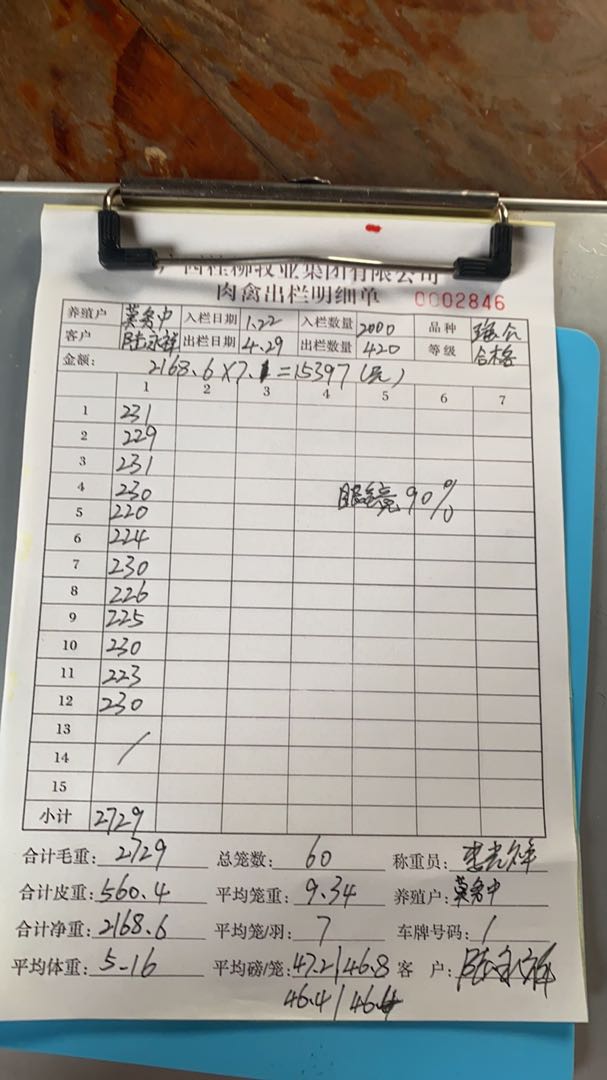 广西桂柳牧业集团有限公司
肉禽出栏明细单 0002846
养殖户 莫务中 入栏日期 1.22 入栏数量 2000 品种
客户 陆永祥 出栏日期 4.29 出栏数量 420 等级 合格
金额: 2168.6×7.1=15397(元)
1 2 3 4 5 6 7
1 231
2 229
3 231
4 230 眼镜90%
5 220
6 224
7 230
8 226
9 225
10 230
11 223
12 230
13
14 /
15
小计 2729
合计毛重: 2729 总笼数: 60 称重员:
合计皮重: 560.4 平均笼重: 9.34 养殖户: 莫务中
合计净重: 2168.6 平均笼/羽: 7 车牌号码: /
平均体重: 5-16 平均磅/笼: 47.2/46.8 客 户: 陆永祥
46.4/46.4